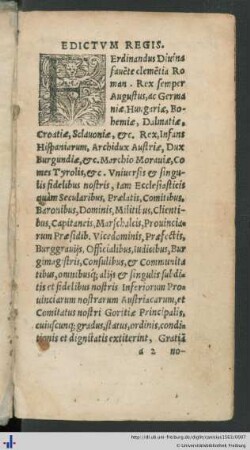 EDICTVM REGIS.
FErdinandus Diuina
fauẽte clemẽtia Ro
man. Rex semper
Augustus, ac Germa
niæ, Hungariæ, Bo-
hemiæ, Dalmatiæ,
Croatiæ, Sclauoniæ, &c. Rex, Infans
Hispaniarum, Archidux Austriæ, Dux
Burgundiæ, &c. Marchio Morauiæ, Co
mes Tyrolis, &c. Vniuersis & singu
lis fidelibus nostris, tam Ecclesiasticis
quàm Secularibus, Prælatis, Comitibus,
Baronibus, Dominis, Militibus, Clienti-
bus, Capitaneis, Marschalcis, Prouincia-
rum Præsidib. Vicedominis, Præfectis,
Burggrauijs, Officialibus, Iudicibus, Bur
gimagistris, Consulibus, & Communita
tibus, omnibusq; alijs & singulis subdi-
tis et fidelibus nostris Inferiorum Pro
uinciarum nostrarum Austriacarum, et
Comitatus nostri Goritiæ Principalis,
cuiuscunq; gradus, status, ordinis, condi-
tionis et dignitatis extiterint, Gratiã
a 2 no-
© Universitätsbibliothek Freiburg